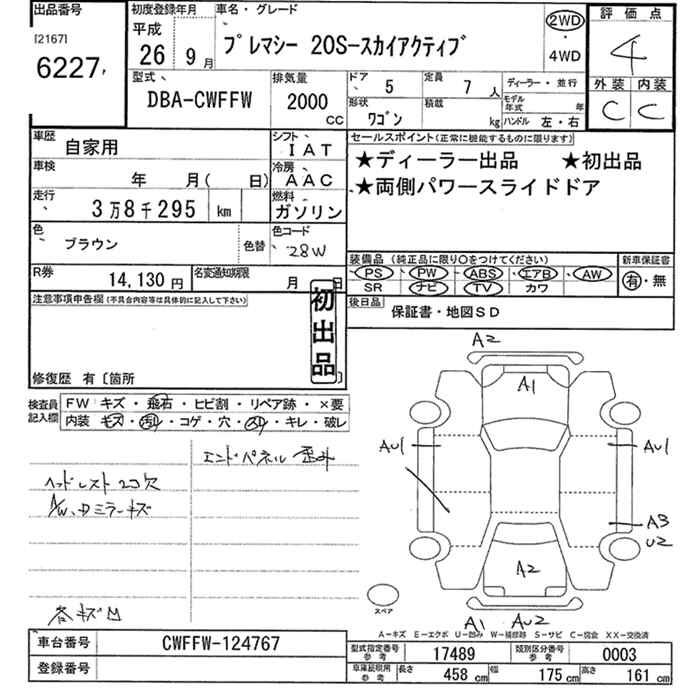 出品番号
[2167]
6227
初度登録年月
平成
26年 9月
車名・グレード
プレマシー 20S-スカイアクティブ
2WD
・
4WD
評価点
4
外装 内装
C C
型式
DBA-CWFFW
排気量
2000
CC
ドア 5
定員 7人
ディーラー・並行
形状
ワゴン
積載 kg
モデル年式 年
ハンドル 左・右
車歴
自家用
シフト
IAT
車検
年 月( 日)
冷房
AAC
走行
3万8千295 km
燃料
ガソリン
色
ブラウン
色替
色コード
28W
R券
14,130 円
名変通知期限
月 日
セールスポイント(正常に機能するものに限ります)
★ディーラー出品 ★初出品
★両側パワースライドドア
装備品(純正品に限り○をつけてください)
新車保証書
PS PW ABS エアB AW
SR ナビ TV カワ
有・無
後日品
保証書・地図SD
注意事項申告欄(不具合内容等は具体的に記入して下さい)
初出品
修復歴 有〔箇所 〕
検査員記入欄
FW キズ・飛石・ヒビ割・リペア跡・×要
内装 キズ・汚れ・コゲ・穴・凹・キレ・破レ
エンドパネル 歪み
ヘッドレスト2コ欠
A/W、ドミラーキズ
各キズ凹
A2
A1
AU1
AU1
A3
U2
A2
A1 AU2
スペア
A-キズ E-エクボ U-凹み W-補修跡 S-サビ C-腐食 XX-交換済
車台番号
CWFFW-124767
登録番号
型式指定番号 参考
17489
類別区分番号 参考
0003
車庫証明用 参考
長さ 458 cm
幅 175 cm
高さ 161 cm